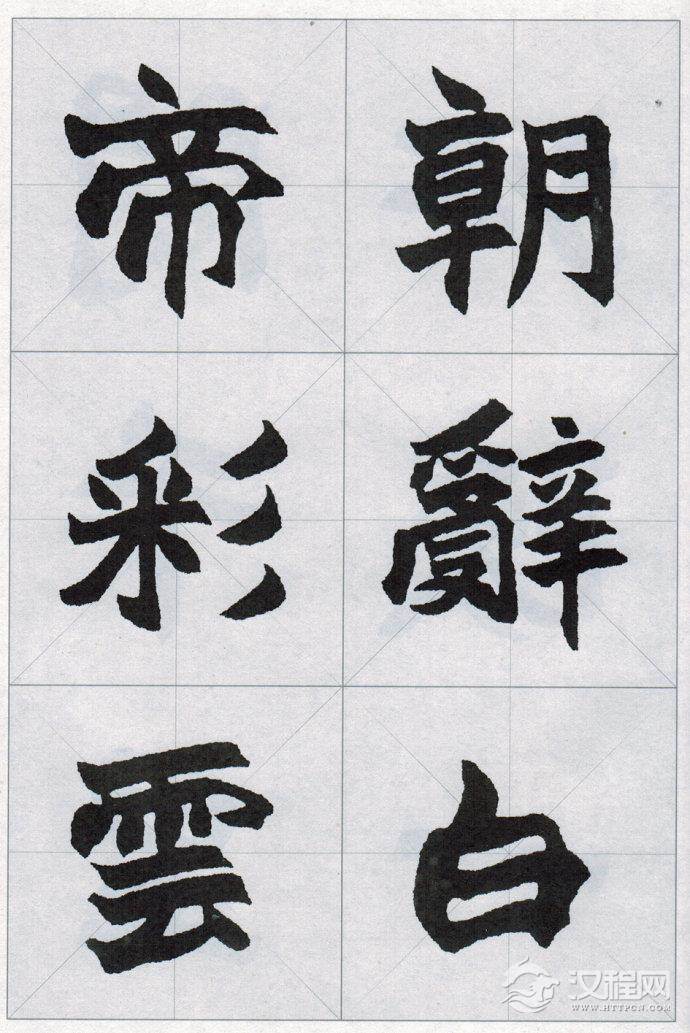 朝辭白
帝彩雲
汉程网
WWW.HTTPCN.COM